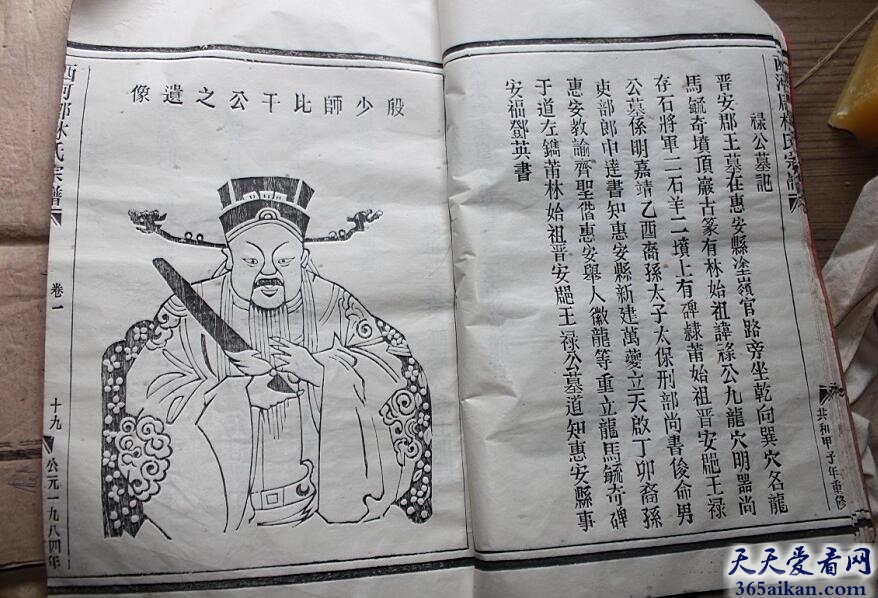 祿公墓記
晋安郡王墓在惠安縣塗嶺官路旁坐乾向巽穴名龍
馬毓奇墳頂嚴古篆有林始祖諱祿公九龍穴明器尚
存石將軍二石羊二墳上有碑隸莆始祖晋安郡王禄
公墓係明嘉靖乙酉裔孫太子太保刑部尚書俊命男
吏部郎中達書知惠安縣新建萬夔立天啟丁卯裔孫
惠安教諭齊聖偕惠安舉人徽龍等重立龍馬毓奇碑
于道左鐫莆林始祖晋安郡王禄公墓道知惠安縣事
安福鄧英書
共和甲子年重修
殷少師比干公之遺像
西河郡林氏宗譜
卷一
十九
公元一九八四年
天天爱看网
365aikan.com